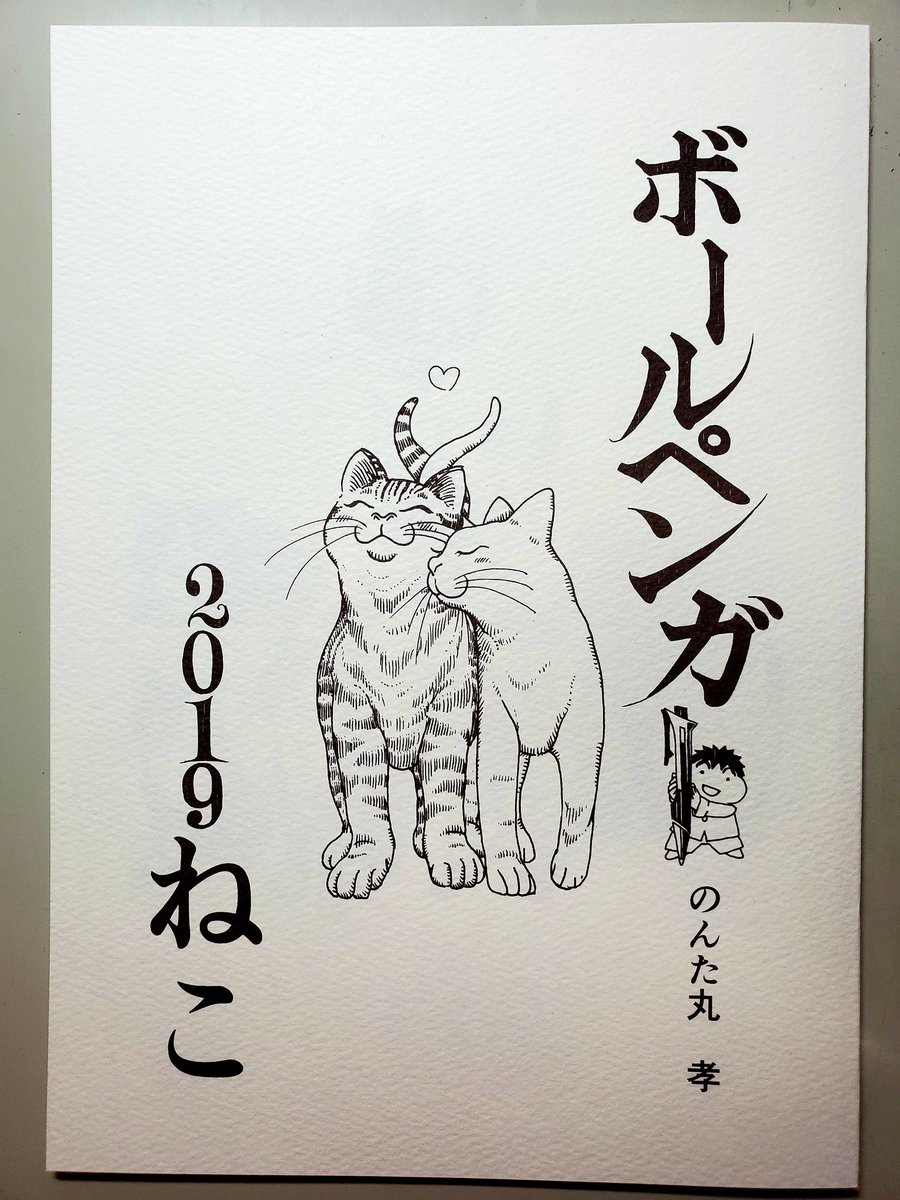 ボールペンガ
のんた丸 孝
2019ねこ